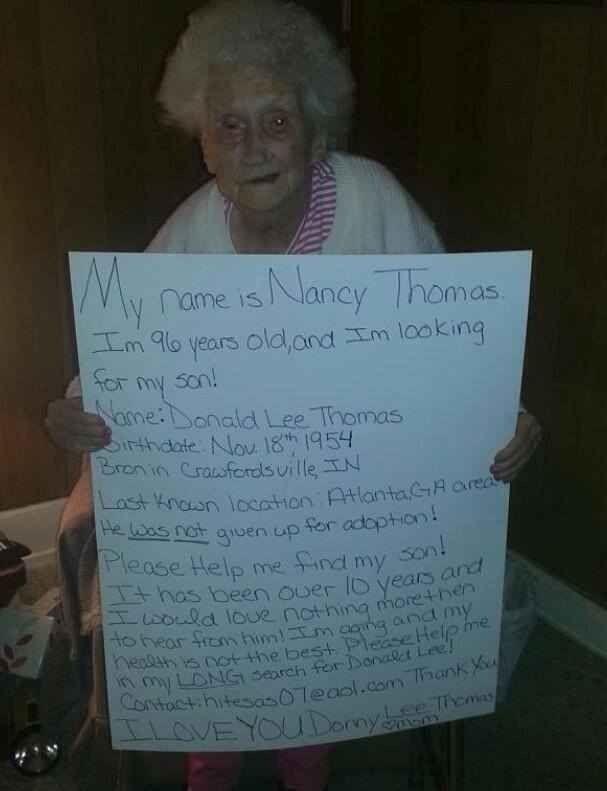 My name is Nancy Thomas.
Im 96 years old, and Im looking
for my son!
Name: Donald Lee Thomas
Birthdate: Nov. 18th, 1954
Bron in Crawfordsville, IN
Last Known location: Atlanta, GA area
He was not given up for adoption!
Please Help me find my son!
It has been over 10 years and
I would love nothing more then
to hear from him! Im aging and my
health is not the best. Please Help me
in my LONG search for Donald Lee!
Contact: hitesas07@aol.com Thank You
I LOVE YOU Donny Lee Thomas
♡mom